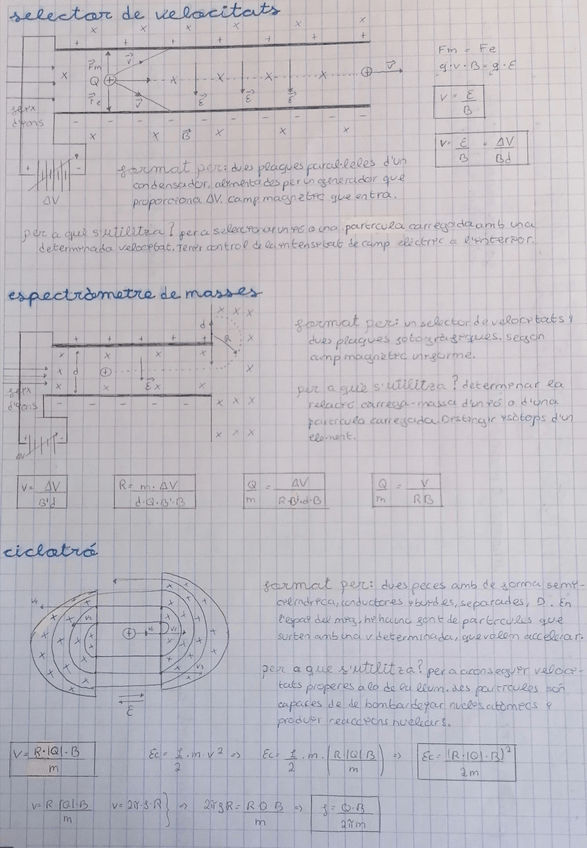 selector de velocitats
Fm = Fe
q·v·B = q·E
v = E/B
v = E/B = ΔV/Bd
Fm
Q
Fe
v
v
v
E
E
E
B
feix
d'ions
ΔV
format per: dues plaques paral·leles d'un
condensador, alimentades per un generador que
proporciona ΔV. camp magnètic que entra.
per a què s'utilitza? per a seleccionar un ió o una partícula carregada amb una
determinada velocitat. Tenir control de la intensitat de camp elèctric a l'interior.
espectròmetre de masses
feix
d'ions
d
d
E
R
ΔV
format per: un selector de velocitats i
dues plaques fotogràfiques, segon
camp magnètic uniforme.
per a què s'utilitza? determinar la
relació càrrega-massa d'un ió o d'una
partícula carregada. Distingir isòtops d'un
element.
v = ΔV/B'd
R = m·ΔV/d·Q·B'·B
Q/m = ΔV/R·B'·d·B
Q/m = V/RB
ciclotró
E
format per: dues peces amb de forma semi-
cilíndrica, conductores i buides, separades, D. En
l'espai del mig, hi ha una font de partícules que
surten amb una v determinada, que volem accelerar.
per a que s'utilitza? per a aconseguir veloci-
tats properes a la de la llum. les partícules són
capaces de de bombardejar nuclis atòmics i
produir reaccions nuclears.
v = R·|Q|·B/m
Ec = 1/2·m·v² ⇒ Ec = 1/2·m·(R·|Q|B/m) ⇒ Ec = (R·|Q|·B)²/2m
v = R|Q|·B/m v = 2π·f·R} ⇒ 2πfR = RQB/m ⇒ f = Q·B/2πm